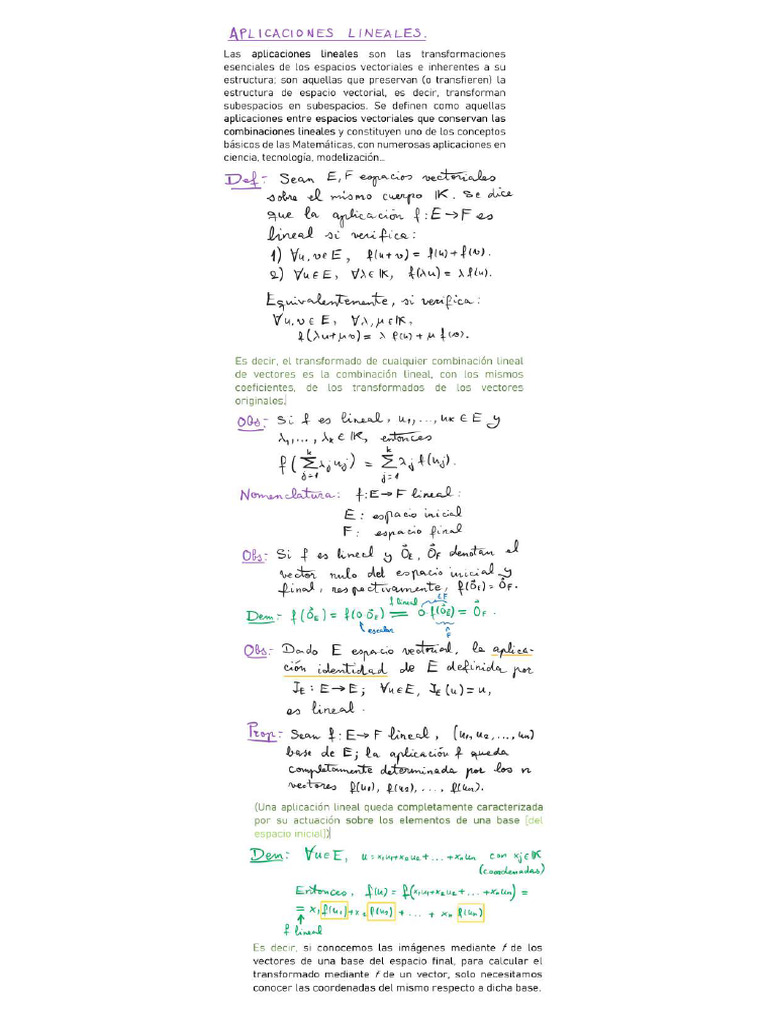 APLICACIONES LINEALES.
Las aplicaciones lineales son las transformaciones
esenciales de los espacios vectoriales e inherentes a su
estructura: son aquellas que preservan (o transfieren) la
estructura de espacio vectorial, es decir, transforman
subespacios en subespacios. Se definen como aquellas
aplicaciones entre espacios vectoriales que conservan las
combinaciones lineales y constituyen uno de los conceptos
básicos de las Matemáticas, con numerosas aplicaciones en
ciencia, tecnología, modelización...
Def:- Sean E, F espacios vectoriales
sobre el mismo cuerpo K. Se dice
que la aplicación f: E→F es
lineal si verifica:
1) ∀u,v∈E, f(u+v) = f(u)+f(v).
2) ∀u∈E, ∀λ∈K, f(λu) = λf(u).
Equivalentemente, si verifica:
∀u,v∈E, ∀λ,μ∈K,
f(λu+μv) = λ f(u) + μ f(v).
Es decir, el transformado de cualquier combinación lineal
de vectores es la combinación lineal, con los mismos
coeficientes, de los transformados de los vectores
originales.
Obs:- Si f es lineal, u₁,...,uₖ ∈ E y
λ₁,..., λₖ ∈ K, entonces
f(∑ⱼ₌₁ᵏ λⱼuⱼ) = ∑ⱼ₌₁ᵏ λⱼ f(uⱼ).
Nomenclatura: f: E→F lineal:
E: espacio inicial
F: espacio final
Obs:- Si f es lineal y 0⃗_E, 0⃗_F denotan el
vector nulo del espacio inicial y
final, respectivamente, f(0⃗_E) = 0⃗_F.
f lineal ∈F
Dem:- f(0⃗_E) = f(0·0⃗_E) = 0·f(0⃗_E) = 0⃗_F.
escalar
Obs:- Dado E espacio vectorial, la aplica-
ción identidad de E definida por
I_E: E→E; ∀u∈E, I_E(u) = u,
es lineal.
Prop:- Sean f: E→F lineal, (u₁,u₂,...,uₙ)
base de E; la aplicación f queda
completamente determinada por los n
vectores f(u₁), f(u₂), ..., f(uₙ).
(Una aplicación lineal queda completamente caracterizada
por su actuación sobre los elementos de una base [del
espacio inicial])
Dem: ∀u∈E, u = x₁u₁+x₂u₂+...+xₙuₙ con xⱼ∈K
(coordenadas)
Entonces, f(u) = f(x₁u₁+x₂u₂+...+xₙuₙ) =
= x₁ f(u₁) + x₂ f(u₂) + ... + xₙ f(uₙ)
f lineal
Es decir, si conocemos las imágenes mediante f de los
vectores de una base del espacio final, para calcular el
transformado mediante f de un vector, solo necesitamos
conocer las coordenadas del mismo respecto a dicha base.